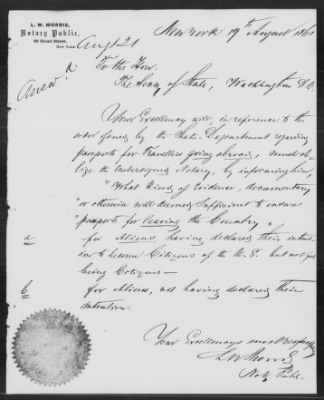 L. W. MORRIS,
Notary Public,
Broad Street,
New York.
New York 19th August 1861
Augt 21
Answd
To the Hon.
The Secy of State, Washington D.C.
Your Excellency will, in reference to the
order issued by the State Department regarding
passports for travellers going abroad, much ob-
lige the undersigned Notary, by informing him,
"What kinds of Evidence, documentary
"or otherwise will be deemed sufficient to ensure
"passports for leaving the Country"
a
for Aliens having declared their inten-
tion to become Citizens of the U.S. but not yet
being Citizens—
b
for Aliens, not having declared their
intention.
Your Excellency's most
L W Morris
Noty Pubc.